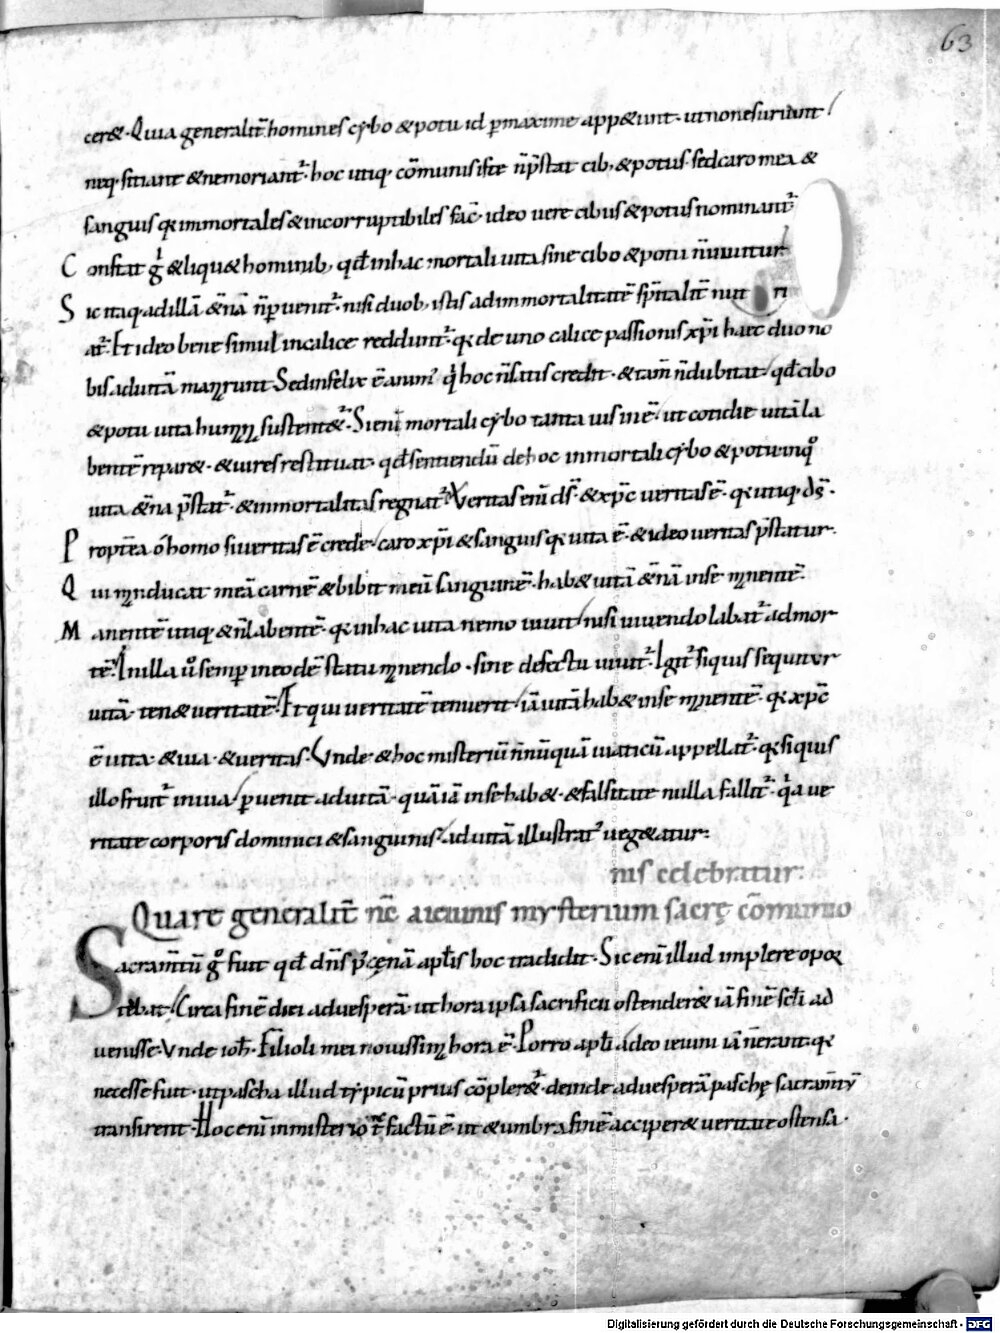 63
cer&. Quia generalit̄ homines cybo & potu id p̄ maxime appetunt. ut non esuriunt
neq; sitiant & ne moriant̄. hoc utiq; cōmunis iste n̄ p̄stat cib; & potus. sed caro mea &
sanguis q; immortales & incorruptibiles fac̄. ideo uere cibus & potus nominant̄
Constat g̊ & liqu& hominib; qđ in hac mortali uita sine cibo & potu n̄ uiuitur
Sic itaq; ad illā ǣnā n̄ puenit̄. nisi duob; istis ad immortalitatē sp̄italit̄ nut ri
at̄. Et ideo bene simul in calice reddunt̄. q; de uno calice passionis xp̄i haec duo no
bis ad uitā manarunt. Sed infelix ē animꝰ q̇ hoc n̄ satis credit. & tam̄ n̄ dubitat qđ cibo
& potu uita humana sustent&̄. Si enī mortali cybo tanta uis inē. ut cotidie uitā la
bentē repar&. & uires restituat. qđ sentiendū de hoc inmortali cybo & potu in quo
uita ǣna p̄stat̄. & inmortalitas regnat̄. Veritas enī d̄s̄. & xp̄c ueritas ē. q; utiq; d̄s̄.
Proptea ō homo si ueritas ē crede. caro xp̄i & sanguis q; uita ē. & ideo ueritas p̄statur.
Qui manducat meā carnē & bibit meū sanguinē. hab& uitā ǣnā in se manentē.
Manentē utiq; & n̄ labentē. q; in hac uita nemo uiuit nisi uiuendo labat̄ ad mor
tē. In illa ů semp in eodē statu manendo. sine defectu uiuit̄. Igit̄ si quis sequitur
uitā. ten& ueritatē. Et qui ueritatē tenuerit iā uitā hab& in se manentē. q; xp̄c
ē uita. & uia. & ueritas. Unde & hoc misteriū n̄nūquā uiaticū appellat̄. q; si quis
illo fruit̄ in uia puenit ad uitā. quā iā in se hab&. & falsitate nulla fallit̄. q̇a ue
ritate corporis dominici & sanguinis ad uitā illustrat̄ ueg&atur:
nis celebratur:
Quare generalit̄ n̄c aieiunis mysterium sacrę cōmunio
Sacram̄tū g̊ fuit qđ dn̄s p̄ cęnā apłis hoc tradidit. Sic enī illud implere opor
tebat. Circa finē diei aduesperā ut hora ipsa sacrificii ostender& iā finē sc̄li ad
uenisse. Unde ioh̄. Filioli mei nouissima hora ē. Porro apłi adeo ieiuni iā n̄ erant. q;
necesse fuit. ut pascha illud typicū prius cōpler&̄. deinde aduesperā paschę sacram̄tū
transirent. Hoc enī in misterio t̄c factū ē. ut & umbra finē acciper& ueritate ostensa.
Digitalisierung gefördert durch die Deutsche Forschungsgemeinschaft - DFG